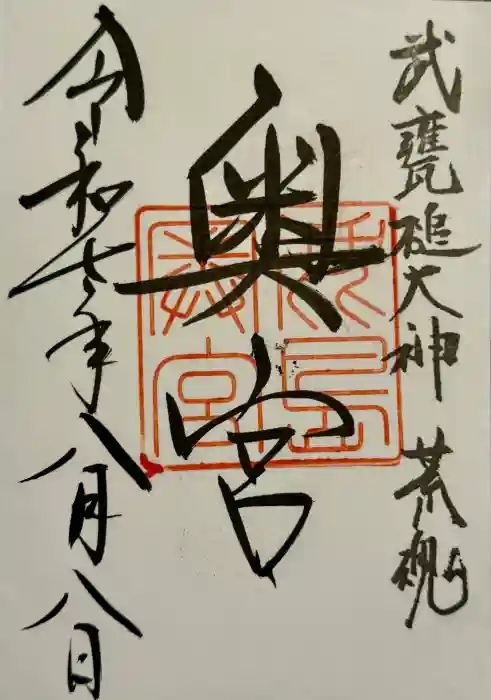 武甕槌大神 荒魂
奥宮
鹿島
奥宮
令和七年八月八日